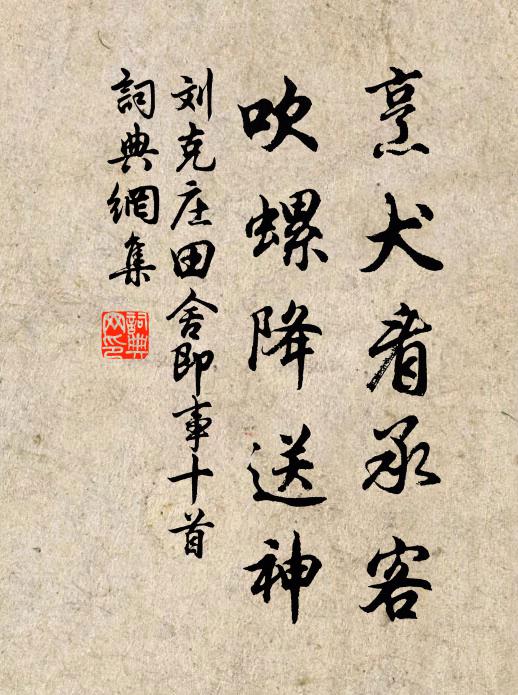 烹犬看承客
吹螺降送神
刘克庄田舍即事十首
詞典網集
詞典
网印